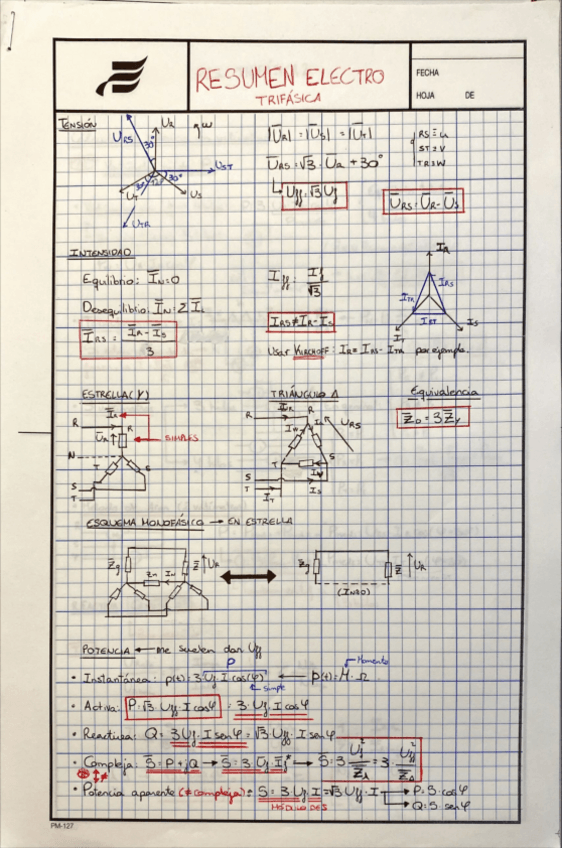 RESUMEN ELECTRO
TRIFÁSICA
FECHA
HOJA DE
TENSIÓN
U_R
ω
U_RS
30°
U_ST
30°
30°
U_T
U_S
U_TR
|U̅_R| = |U̅_S| = |U̅_T|
U̅_RS = √3 · U̅_R + 30°
U_ff = √3 U_f
RS ≡ U
ST ≡ V
TR ≡ W
U̅_RS = U̅_R - U̅_S
INTENSIDAD
Equilibrio: I̅_N = 0
Desequilibrio: I̅_N = Σ I̅_i
I̅_RS = (I̅_R - I̅_S) / 3
I_ff = I_f / √3
I_RS ≠ I_R - I_S
Usar KIRCHOFF: I_R = I_RS - I_TR por ejemplo.
I_R
I_RS
I_TR
I_ST
I_T
I_S
ESTRELLA (Y)
TRIÁNGULO Δ
Equivalencia
Z̅_D = 3 Z̅_Y
I̅_R
R
R
U̅_R
SIMPLES
N
T
S
S
T
R
I_R
R
U_RS
T
S
S
I_S
T
I_T
ESQUEMA MONOFÁSICO → EN ESTRELLA
Z̅g
Zn
I_N
Z̅
U_R
Z̅g
Z̅
U_R
(I_N = 0)
POTENCIA ← me suelen dar U_ff
P
Momento
• Instantánea: p(t) = 3 · U_f · I cos(φ) ← p(t) = M · Ω
simple
• Activa: P = √3 · U_ff · I cos φ = 3 · U_f · I cos φ
• Reactiva: Q = 3 U_f · I sen φ = √3 · U_ff · I sen φ
• Compleja: S̅ = P + jQ → S̅ = 3 · U̅_f · I̅_f* → S̅ = 3 · U_f² / Z̅_λ = 3 · U_ff² / Z̅_Δ
• Potencia aparente (≠ compleja): S = 3 U_f I = √3 U_ff · I → P = S · cos φ
→ Q = S · sen φ
MÓDULO DE S
PM-127